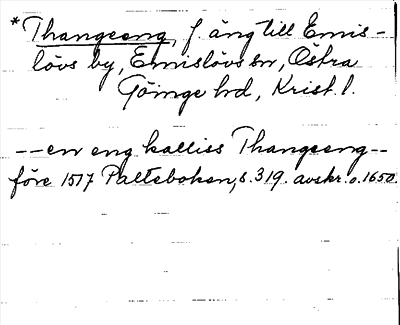 *Thangeeng, f. äng till Emis-
lövs by, Emislövs sn, Östra
Göinge hd, Krist. l.
--en eng kalliss Thangeeng--
före 1517 Palteboken, s. 319. avskr. o. 1650.